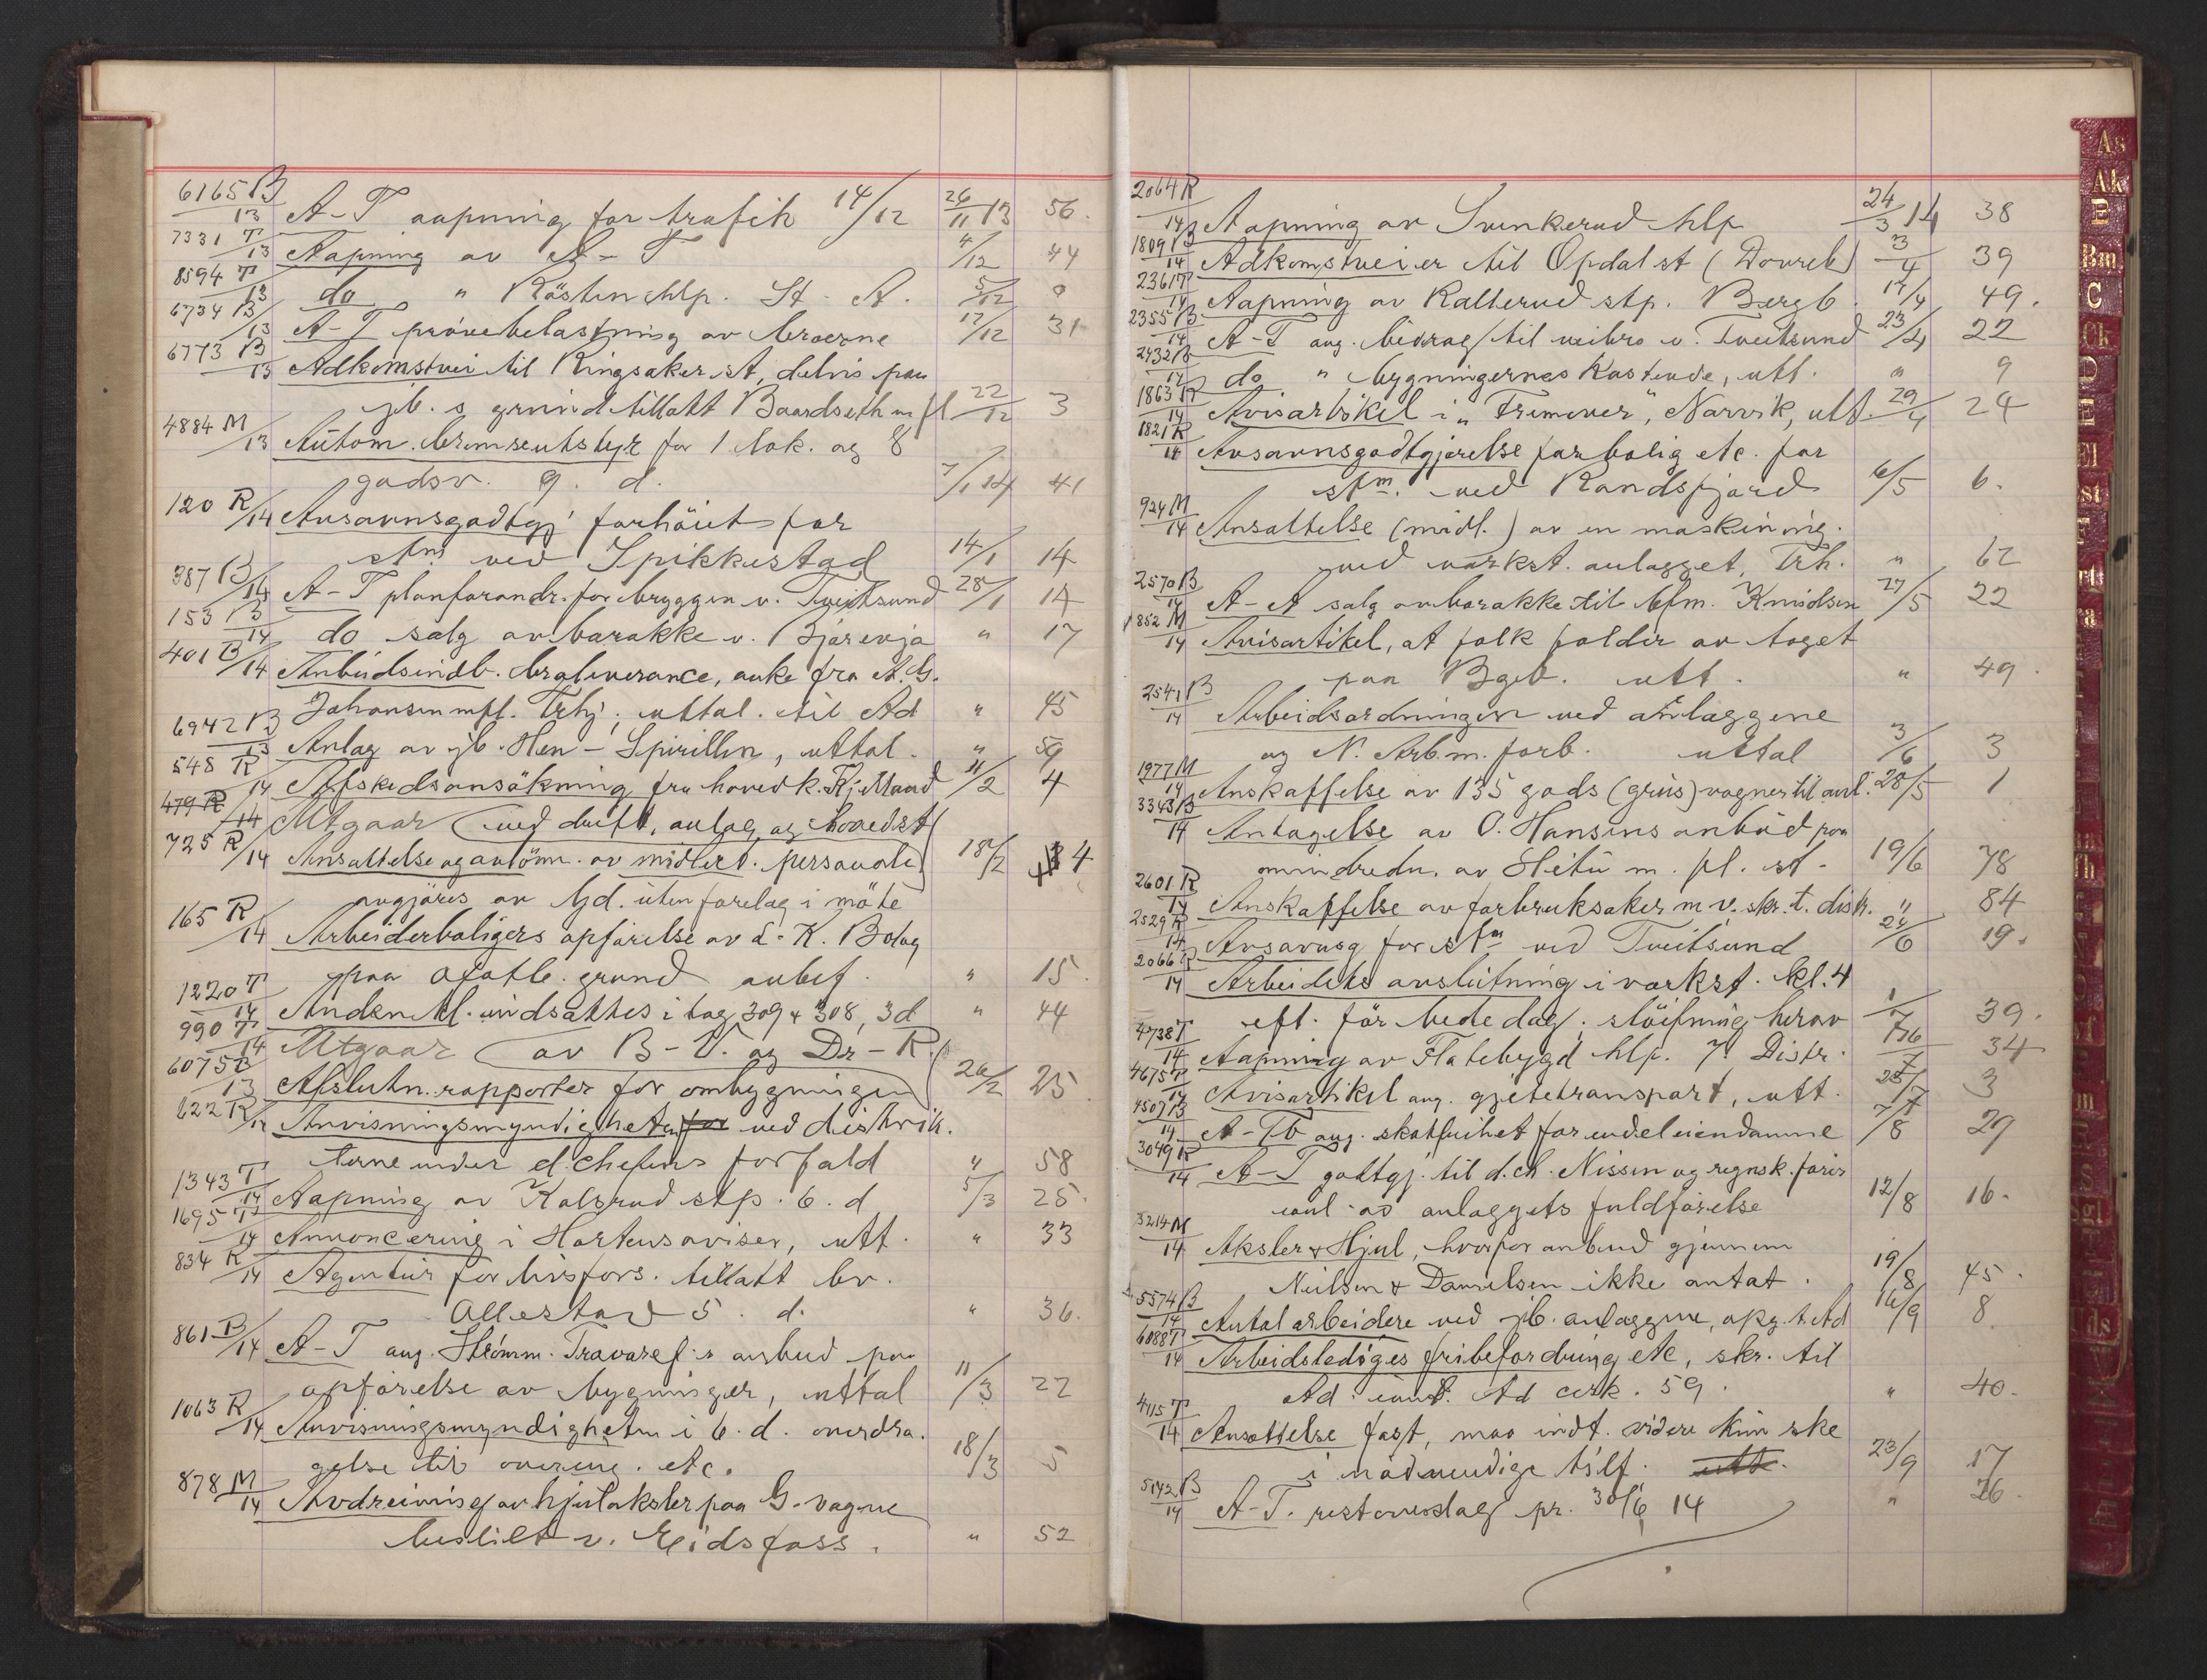 6165 B/13 A-T aapning for trafik 14/12 26/11 13 56.
7331 T/13 Aapning av A-T 4/12 44
8594 T/13 do " Røsten hlp. St. A. 5/12 0
6734 B/13 A-T prøvebelastning av broerne 17/12 31
6773 B/13 Adkomstvei til Ringsaker st, delvis paa
jb.s grund tillatt Baardseth m fl 22/12 3
4884 M/13 Autom. bremseutstyr for 1 lok. og 8
godsv. 9. d. 7/1 14 41
120 R/14 Ansavnsgodtgj forhöiet for
stm ved Spikkestad 14/1 14
387 B/14 A-T planforandr. for bryggen v. Tveitsund 28/1 14
153 B/14 do salg av barakke v. Bjørevja " 17
401 B/14 Anbudsindb. brgleverance, anke fra A.G.
Johansen mfl. Trhj. uttal. til Ad " 45
6942 B/13 Anlæg av jb. Hen-Spirillen, uttal. " 59
548 R/14 Afskedsansökning fra hovedk. Kjelland 11/2 4
479 R/14 Utgaar (ved drift, anlæg og hovedst
725 R/14 Ansættelse og avlönn. av midlert. personale) 18/2 4
avgjöres av bjd. uten forelæg i möte
165 R/14 Arbeiderboligers opförelse av L-K. Bolag
paa Ofotb. grund anbef. " 15.
1220 T/14 Anden kl. indsættes i tog 309 & 308, 3d " 44
990 T/14 Utgaar (av B-V. og Dr-R.
6075 B/13 Afslutn. rapporter for ombygningen 26/2 25
622 R/14 Anvisningsmyndigheten for ved distrik.
terne under d.chefens forfald " 58
1343 T/14 Aapning av Kolsrud stp. 6. d 5/3 25.
1695 T/14 Annoncering i Hortensaviser, utt. " 33
834 R/14 Agentur for livsfors. tillatt bv.
Ollestad 5. d. " 36.
861 B/14 A-T ang. Strömm. Trævaref.s anbud paa
opförelse av bygninger, uttal 11/3 22
1063 R/14 Anvisningsmyndigheten i 6. d. overdra.
gelse til overing. etc. 18/3 5
878 M/14 Avdreining av hjulaksler paa G. vogne
bestilt v. Eidsfoss. " 52
2064 R/14 Aapning av Svenkerud hlp 24/3 14 38
1809 B/14 Adkomstveier til Opdal st (Dovreb) 3/4 39
2361 T/14 Aapning av Kalterud stp. Bergb. 17/4 49.
2355 B/14 A-T ang. bidrag til veibro v. Tveitsund 23/4 22
2432 B/14 do " bygningernes kostende, utt. " 9
1863 R/14 Avisartikel i "Fremover", Narvik, utt. 29/4 24
1821 R/14 Ansavnsgodtgjørelse for bolig etc. for
stm. ved Randsfjord 6/5 6.
924 M/14 Ansættelse (midl.) av en maskining.
ved værkst. anlægget, Trh. " 62
2570 B/14 A-A salg av barakke til bfm. Knudsen 27/5 22
1852 M/14 Avisartikel, at folk falder av toget
paa Bgb. utt. " 49.
2541 B/14 Arbeidsordningen ved anlæggene
og N. Arb.m. forb. uttal 3/6 3
1977 M/14 Anskaffelse av 135 gods (grus)vogner til anl. 28/5 1
3343 B/14 Antagelse av O. Hansens anbud paa
omindredn. av Stetu m. pl. st. 19/6 78
2601 R/14 Anskaffelse av forbruksaker m v. skr. t. distr. " 84
2529 R/14 Ansavnsg for stm ved Tveitsund 24/6 19.
2066 R/14 Arbeidets avslutning i værkst. kl. 4
eft. för bededag, slöifning herav 1/7 39.
4738 T/14 Aapning av Flatebygd hlp. 7. Distr. 16/7 34
4675 T/14 Avisartikel ang. gjetetransport, utt. 25/7 3
4507 B/14 A-Tb ang. skatfrihet for endel eiendomme 7/8 29
3049 R/14 A-T godtgj. til d.ch. Nissen og regnsk.förer
anl. av anlæggets fuldförelse 12/8 16.
3214 M/14 Aksler & Hjul, hvorfor anbud gjennem
Neilsen & Danielsen ikke antat. 19/8 45.
5574 B/14 Antal arbeidere ved jb. anlæggene, opg. t. Ad 16/9 8.
6088 T/14 Arbeidslediges fribefordring etc, skr. til
Ad: Ad cirk. 59. " 40.
4115 T/14 Ansættelse fast, maa indt. videre kun ske
i nödvendige tilf. utt. 23/9 17
5142 B/14 A-T. restoverslag pr. 30/6 14 " 26.
As
Ak
B
Bm
C
Ck
D
E
El
Sgl